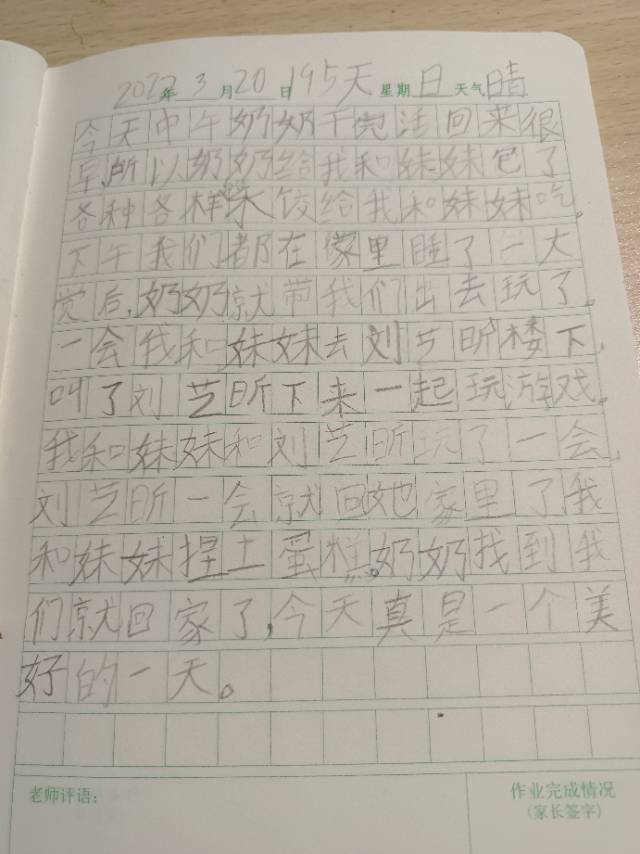 2022年3月20日195天 星期日 天气晴
今天中午奶奶干完活回来很
早,所以奶奶给我和妹妹包了
各种各样水饺给我和妹妹吃。
下午我们都在家里睡了一大
觉后,奶奶就带我们出去玩了。
一会我和妹妹去刘艺昕楼下,
叫了刘艺昕下来一起玩游戏。
我和妹妹和刘艺昕玩了一会。
刘艺昕一会就回她家里了我
和妹妹捏土蛋糕。奶奶找到我
们就回家了,今天真是一个美
好的一天。
老师评语:
作业完成情况
(家长签字)